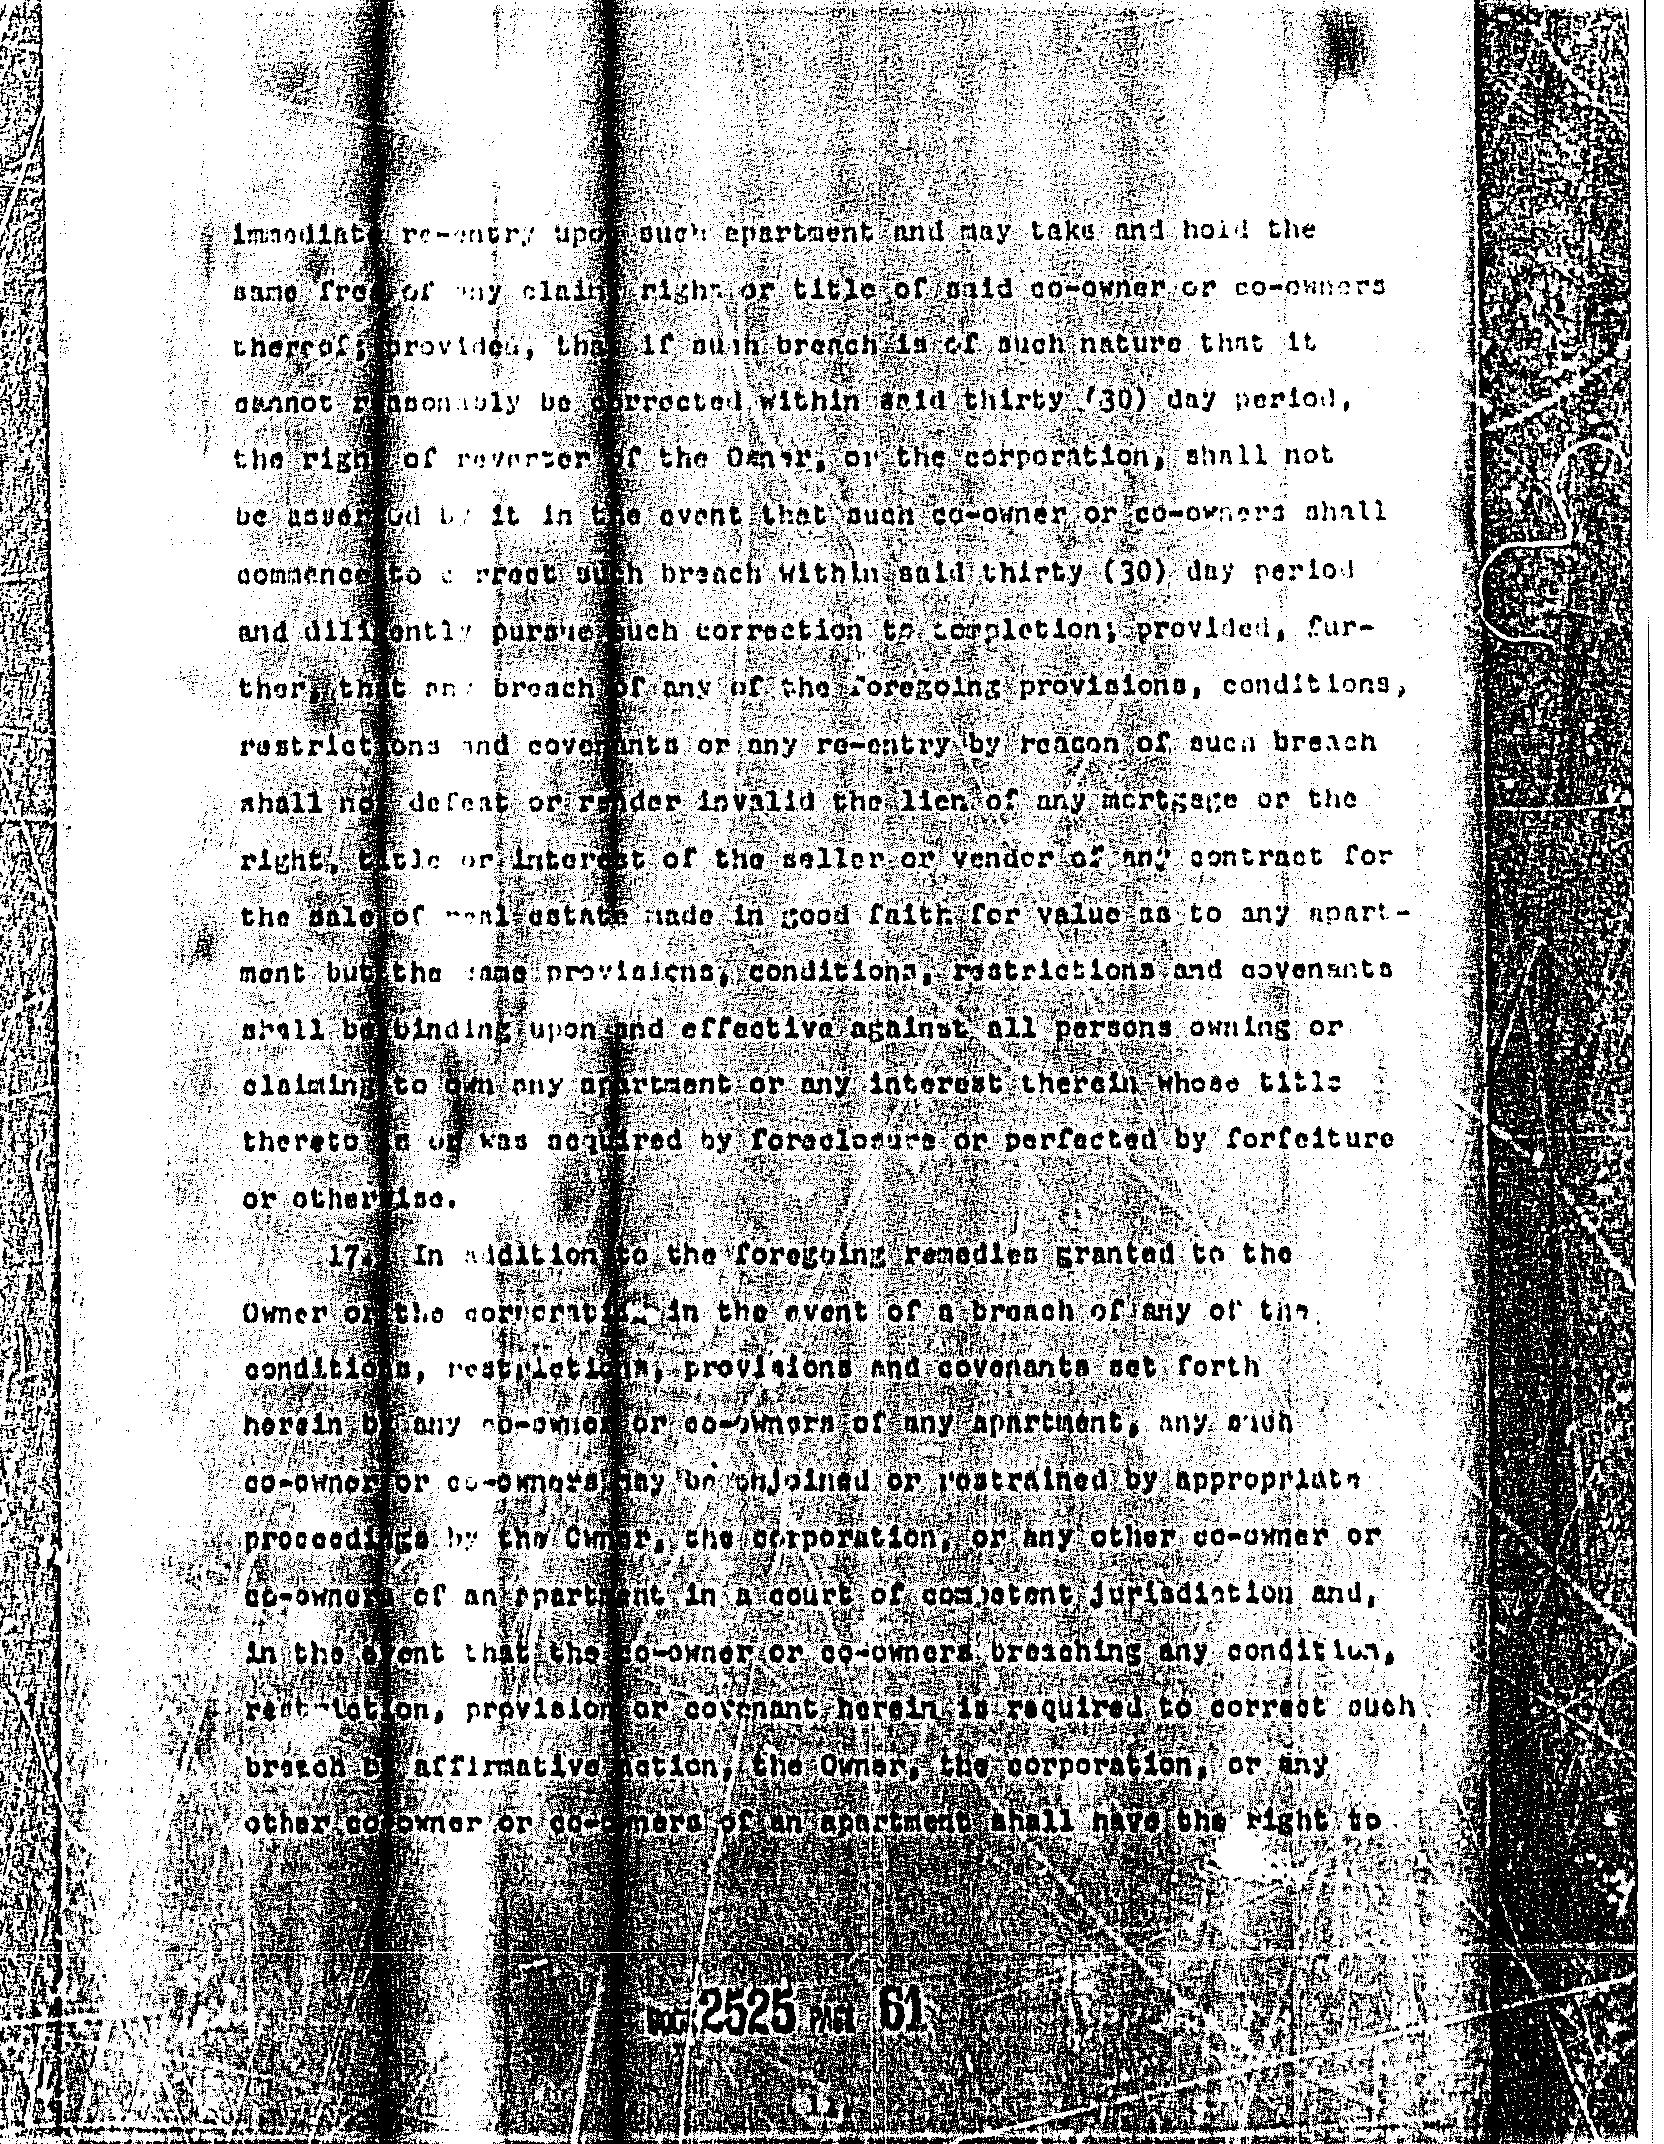 immediate re-entry upon such apartment and may take and hold the
same free of any claim, right or title of said co-owner or co-owners
thereof; provided, that if such breach is of such nature that it
cannot reasonably be corrected within said thirty (30) day period,
the right of reverter of the Owner, or the corporation, shall not
be asserted by it in the event that such co-owner or co-owners shall
commence to correct such breach within said thirty (30) day period
and diligently pursue such correction to completion; provided, fur-
ther, that any breach of any of the foregoing provisions, conditions,
restrictions and covenants or any re-entry by reason of such breach
shall not defeat or render invalid the lien of any mortgage or the
right, title or interest of the seller or vendor of any contract for
the sale of real estate made in good faith for value as to any apart-
ment but the same provisions, conditions, restrictions and covenants
shall be binding upon and effective against all persons owning or
claiming to own any apartment or any interest therein whose title
thereto is or was acquired by foreclosure or perfected by forfeiture
or otherwise.
17. In addition to the foregoing remedies granted to the
Owner or the corporation in the event of a breach of any of the
conditions, restrictions, provisions and covenants set forth
herein by any co-owner or co-owners of any apartment, any such
co-owner or co-owners may be enjoined or restrained by appropriate
proceedings by the Owner, the corporation, or any other co-owner or
co-owners of an apartment in a court of competent jurisdiction and,
in the event that the co-owner or co-owners breaching any condition,
restriction, provision or covenant herein is required to correct such
breach by affirmative action, the Owner, the corporation, or any
other co-owner or co-owners of an apartment shall have the right to
2525 PAGE 61
11.